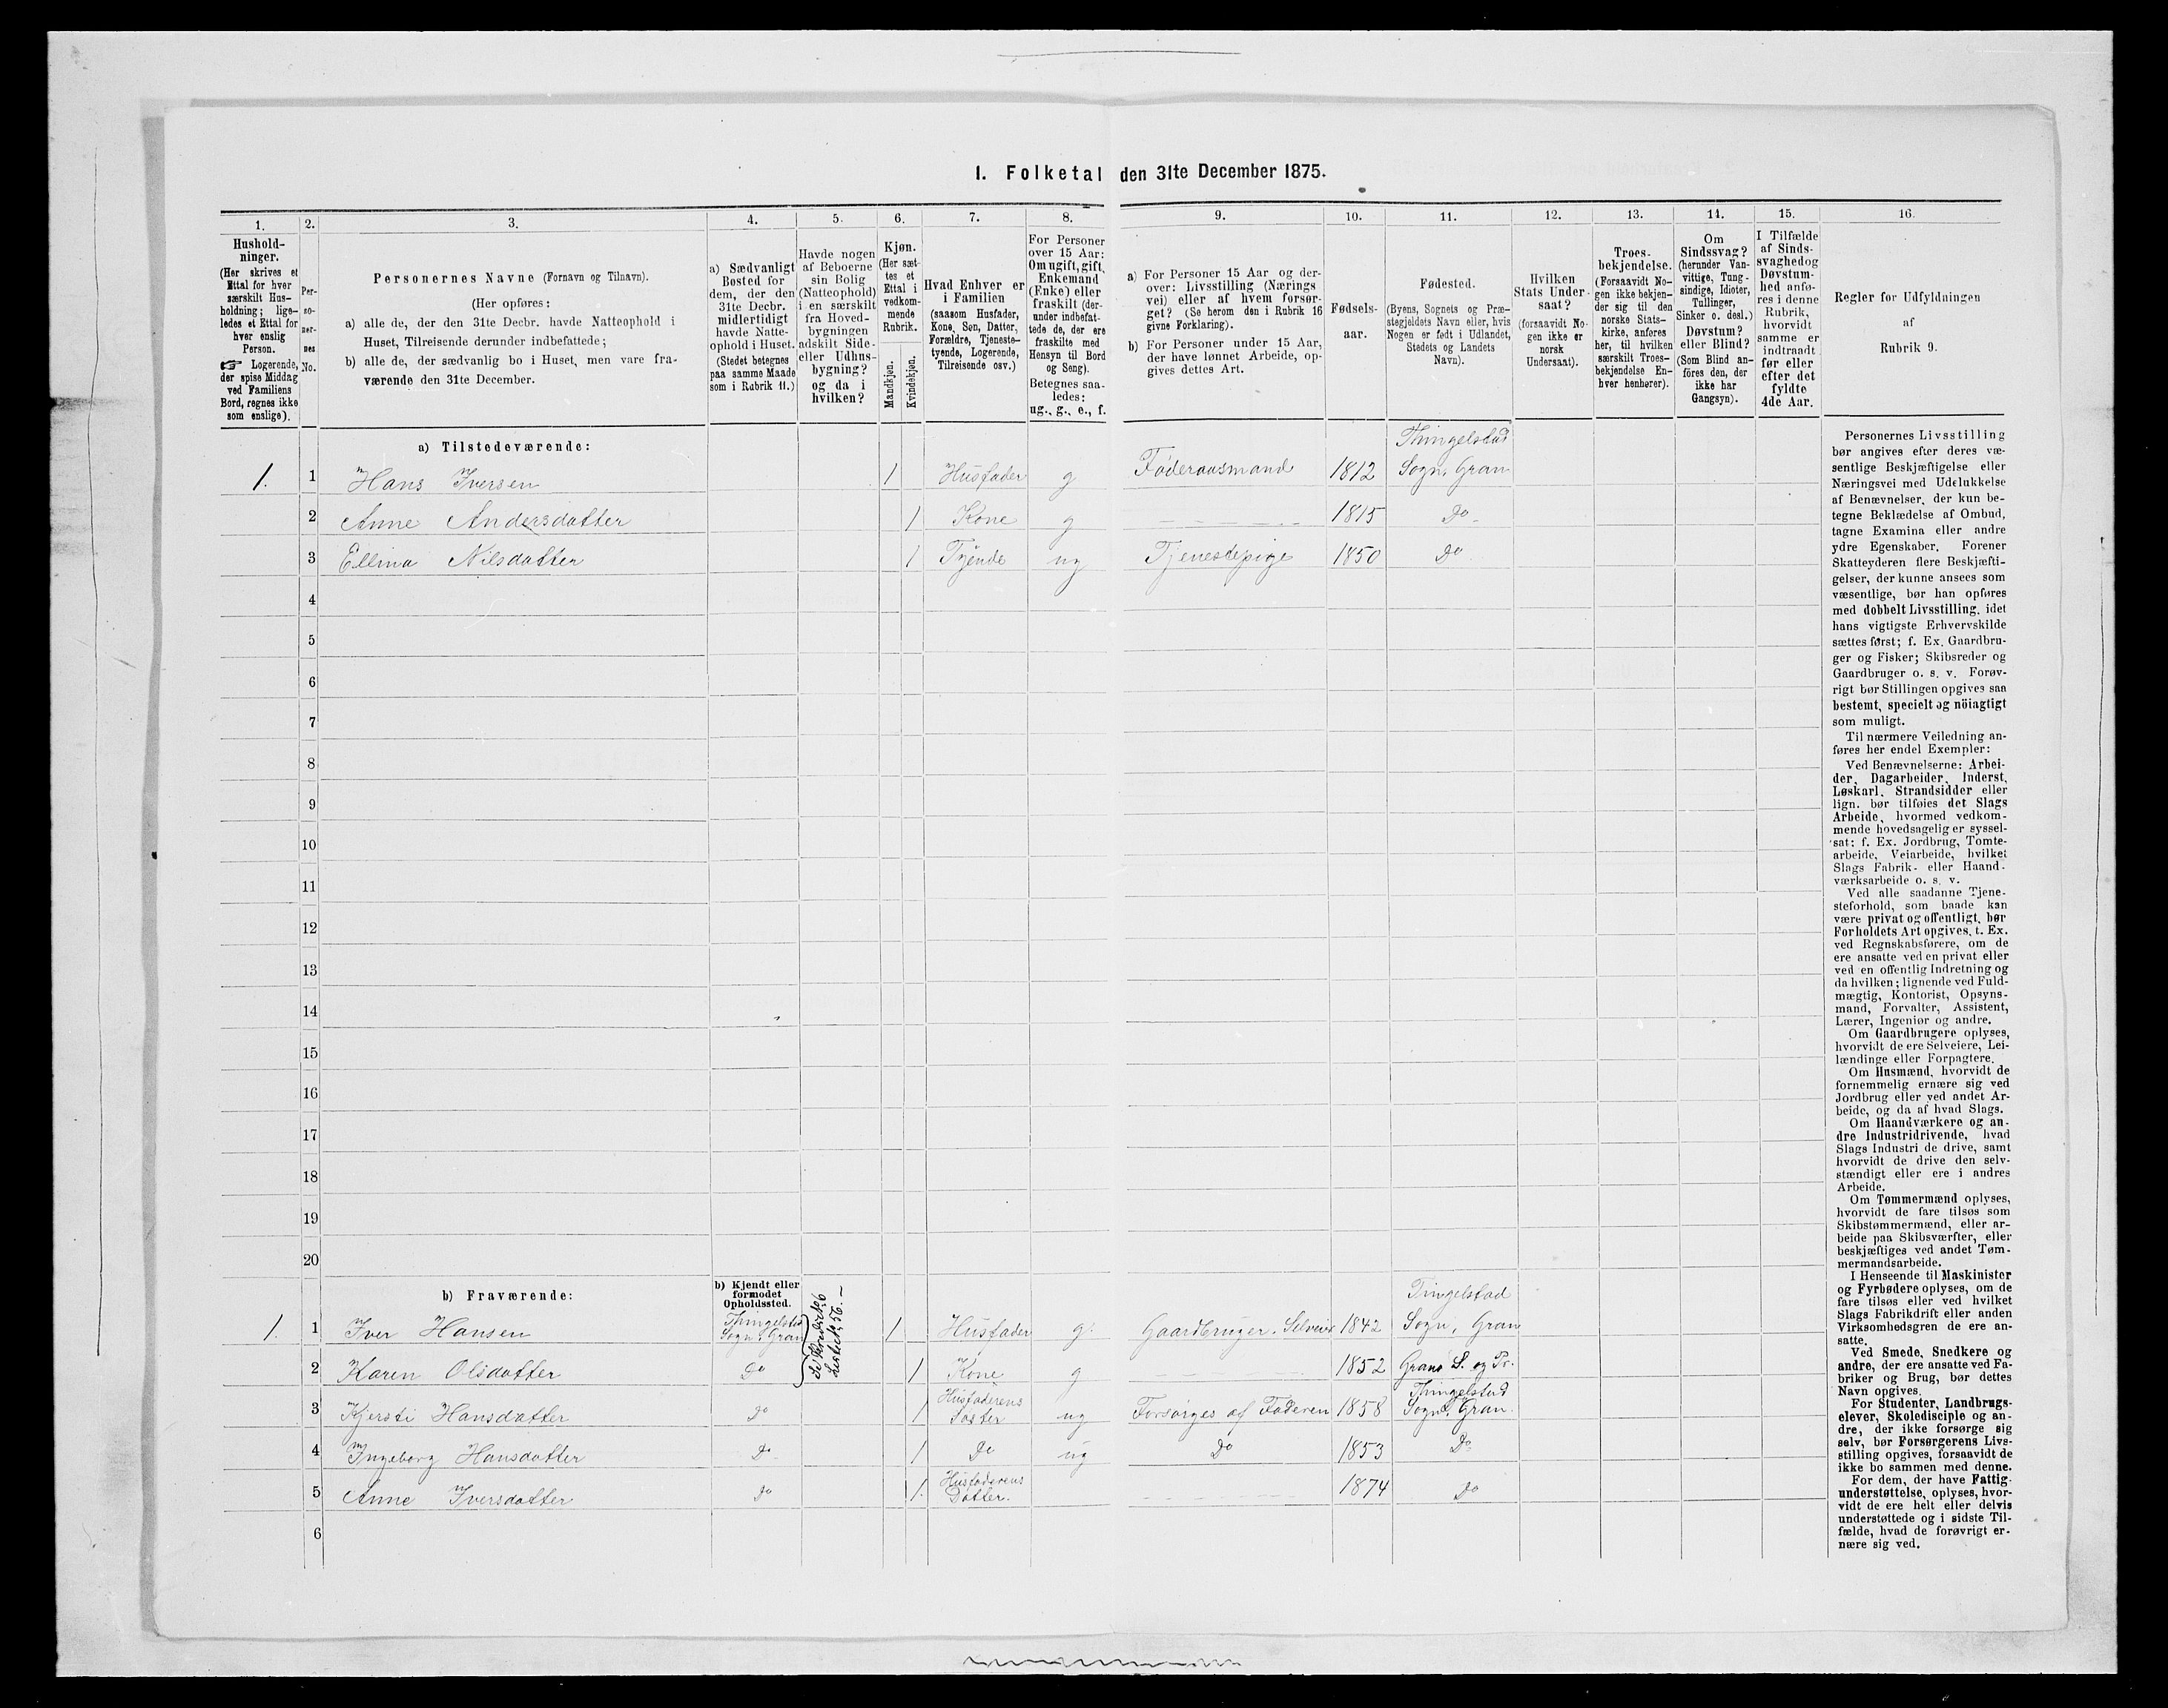 I. Folketal den 31te December 1875.
1.
Hushold-
ninger.
(Her skrives et
Ettal for hver
særskilt Hus-
holdning; lige-
ledes et Ettal for
hver enslig
Person.
☞ Logerende,
der spise Middag
ved Familiens
Bord, regnes ikke
som enslige).
2.
Per-
so-
ner-
nes
No.
3.
Personernes Navne (Fornavn og Tilnavn).
(Her opføres:
a) alle de, der den 31te Decbr. havde Natteophold i
Huset, Tilreisende derunder indbefattede;
b) alle de, der sædvanlig bo i Huset, men vare fra-
værende den 31te December.
4.
a) Sædvanligt
Bosted for
dem, der den
31te Decbr.
midlertidigt
havde Natte-
ophold i Huset.
(Stedet betegnes
paa samme Maade
som i Rubrik 11.)
5.
Havde nogen
af Beboerne
sin Bolig
(Natteophold)
i en særskilt
fra Hoved-
bygningen
adskilt Side-
eller Udhus-
bygning?
og da i
hvilken?
6.
Kjøn.
(Her sæt-
tes et
Ettal i
vedkom-
mende
Rubrik.
Mandkjøn.
Kvindekjøn.
7.
Hvad Enhver er
i Familien
(saasom Husfader,
Kone, Søn, Datter,
Forældre, Tjeneste-
tyende, Logerende,
Tilreisende osv.)
8.
For Personer
over 15 Aar:
Om ugift, gift,
Enkemand
(Enke) eller
fraskilt (der-
under indbefat-
tede de, der ere
fraskilte med
Hensyn til Bord
og Seng).
Betegnes saa-
ledes:
ug., g., e., f.
9.
a) For Personer 15 Aar og der-
over: Livsstilling (Nærings
vei) eller af hvem forsør-
get? (Se herom den i Rubrik 16
givne Forklaring).
b) For Personer under 15 Aar,
der have lønnet Arbeide, op-
gives dettes Art.
10.
Fødsels-
aar.
11.
Fødested.
(Byens, Sognets og Præ-
stegjeldets Navn eller, hvis
Nogen er født i Udlandet,
Stedets og Landets
Navn).
12.
Hvilken
Stats Under-
saat?
(forsaavidt No-
gen ikke er
norsk
Undersaat).
13.
Troes-
bekjendelse.
(Forsaavidt No-
gen ikke bekjen-
der sig til den
norske Stats-
kirke, anføres
her, til hvilken
særskilt Troes-
bekjendelse En-
hver henhører).
14.
Om
Sindssvag?
(herunder Van-
vittige, Tung-
sindige, Idioter,
Tullinger,
Sinker o. desl.)
Døvstum?
eller Blind?
(Som Blind an-
føres den, der
ikke har
Gangsyn).
15.
I Tilfælde
af Sinds-
svaghed og
Døvstum-
hed anfø-
res i denne
Rubrik,
hvorvidt
samme er
indtraadt
før eller
efter det
fyldte
4de Aar.
16.
Regler for Udfyldningen
af
Rubrik 9.
a) Tilstedeværende:
1. 1 Hans Iversen 1 Husfader g Føderaasmand 1812 Thingelstad
Sogn, Gran
2 Anne Andersdatter 1 Kone g 1815 Do
3 Ellina Nilsdatter 1 Tyende ug Tjenestepige 1850 Do
4
5
6
7
8
9
10
11
12
13
14
15
16
17
18
19
20
b) Fraværende:
b) Kjendt eller
formodet
Opholdssted.
1. 1 Iver Hansen Thingelstad
Sogn, Gran 1 Husfader g. Gaardbruger. Selveier 1842 Tingelstad
Sogn, Gran
2 Karen Olsdatter Do 1 Kone g 1852 Grans S. og Pr.
3 Kjersti Hansdatter Do 1 Husfaderens
Søster ug Forsørges af Faderen 1858 Thingelstad
Sogn, Gran.
4 Ingeborg Hansdatter Do 1 Do ug Do 1853 Do
5 Anne Iversdatter Do 1 Husfaderens
Datter. 1874 Do
6
Personernes Livsstilling
bør angives efter deres væ-
sentlige Beskjæftigelse eller
Næringsvei med Udelukkelse
af Benævnelser, der kun be-
tegne Beklædelse af Ombud,
tagne Examina eller andre
ydre Egenskaber. Forener
Skatteyderen flere Beskjæfti-
gelser, der kunne ansees som
væsentlige, bør han opføres
med dobbelt Livsstilling, idet
hans vigtigste Erhvervskilde
sættes først; f. Ex. Gaardbru-
ger og Fisker; Skibsreder og
Gaardbruger o. s. v. Forøv-
rigt bør Stillingen opgives saa
bestemt, specielt og nöiagtigt
som muligt.
Til nærmere Veiledning an-
føres her endel Exempler:
Ved Benævnelserne: Arbei-
der, Dagarbeider, Inderst,
Løskarl, Strandsidder eller
lign. bør tilføies det Slags
Arbeide, hvormed vedkom-
mende hovedsagelig er syssel-
sat; f. Ex. Jordbrug, Tomte-
arbeide, Veiarbeide, hvilket
Slags Fabrik- eller Haand-
værksarbeide o. s. v.
Ved alle saadanne Tjene-
steforhold, som baade kan
være privat og offentligt, bør
Forholdets Art opgives, t. Ex.
ved Regnskabsførere, om de
ere ansatte ved en privat eller
ved en offentlig Indretning og
da hvilken; lignende ved Fuld-
mægtig, Kontorist, Opsyns-
mand, Forvalter, Assistent,
Lærer, Ingeniør og andre.
Om Gaardbrugere oplyses,
hvorvidt de ere Selveiere, Lei-
lændinge eller Forpagtere.
Om Husmænd, hvorvidt de
fornemmelig ernære sig ved
Jordbrug eller ved andet Ar-
beide, og da af hvad Slags.
Om Haandværkere og an-
dre Industridrivende, hvad
Slags Industri de drive, samt
hvorvidt de drive den selv-
stændigt eller ere i andres
Arbeide.
Om Tømmermænd oplyses,
hvorvidt de fare tilsøs som
Skibstømmermænd, eller ar-
beide paa Skibsværfter, eller
beskjæftiges ved andet Tøm-
mermandsarbeide.
I Henseende til Maskinister
og Fyrbødere oplyses, om de
fare tilsøs eller ved hvilket
Slags Fabrikdrift eller anden
Virksomhedsgren de ere an-
satte.
Ved Smede, Snedkere og
andre, der ere ansatte ved Fa-
briker og Brug, bør dettes
Navn opgives.
For Studenter, Landbrugs-
elever, Skoledisciple og an-
dre, der ikke forsørge sig
selv, bør Forsørgerens Livs-
stilling opgives, forsaavidt de
ikke bo sammen med denne.
For dem, der have Fattig-
understøttelse, oplyses, hvor-
vidt de ere helt eller delvis
understøttede og i sidste Til-
fælde, hvad de forøvrigt er-
nære sig ved.